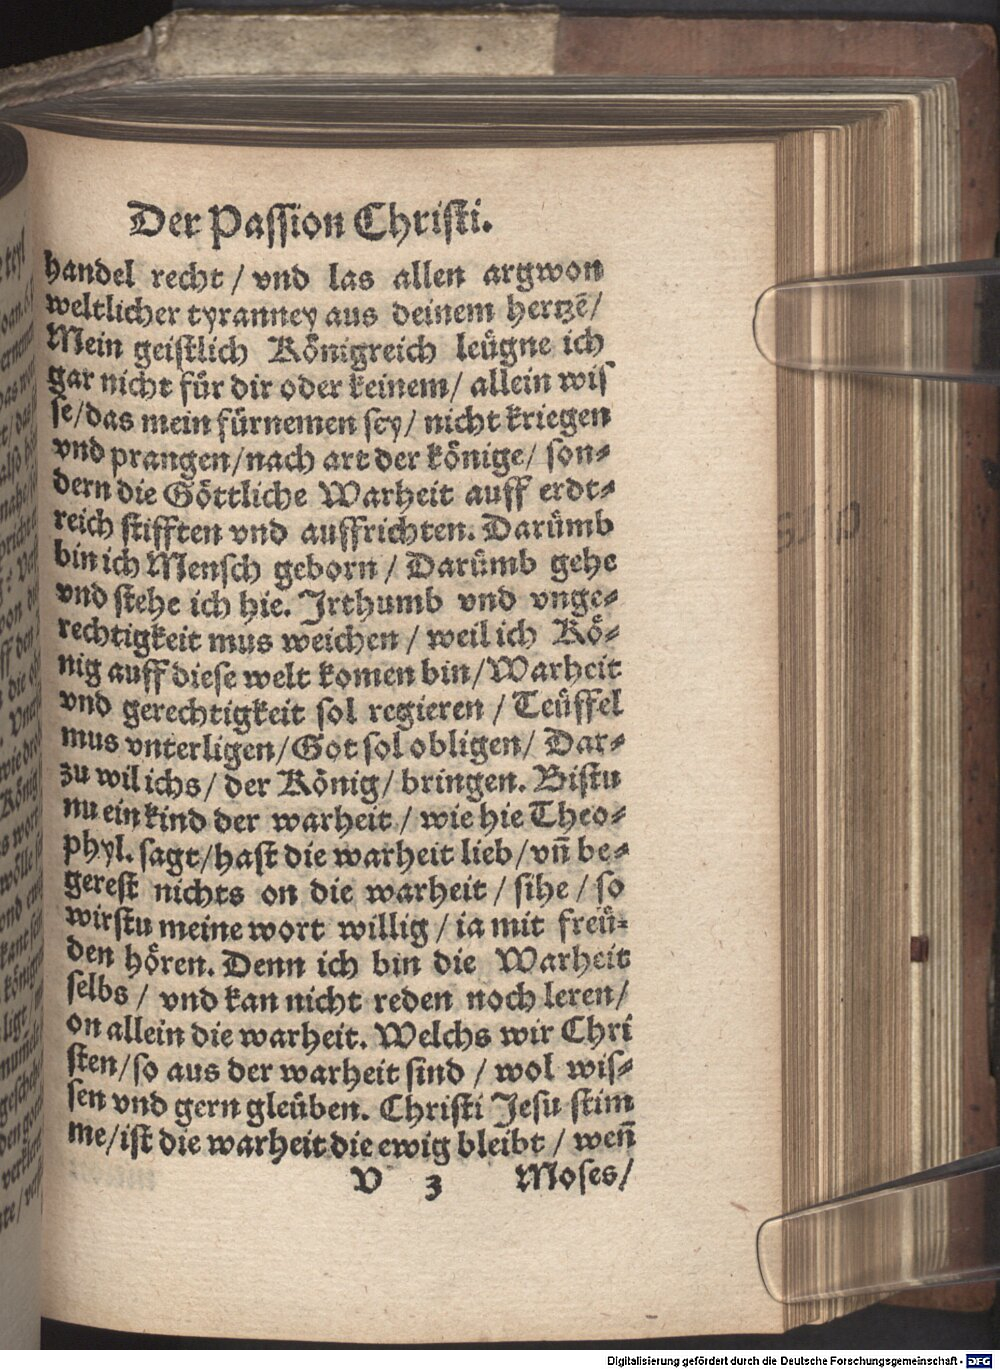 Der Passion Christi.
handel recht / vnd las allen argwon
weltlicher tyranney aus deinem hertzē/
Mein geistlich Königreich leügne ich
gar nicht für dir oder keinem/ allein wis
se/das mein fürnemen sey/ nicht kriegen
vnd prangen/nach art der könige/ son-
dern die Göttliche Warheit auff erdt-
reich stifften vnd auffrichten. Darümb
bin ich Mensch geborn / Darümb gehe
vnd stehe ich hie. Irthumb vnd vnge-
rechtigkeit mus weichen / weil ich Kö-
nig auff diese welt komen bin/Warheit
vnd gerechtigkeit sol regieren / Teüffel
mus vnterligen/Got sol obligen/ Dar-
zu wil ichs/ der König/ bringen. Bistu
nu ein kind der warheit / wie hie Theo-
phyl. sagt/hast die warheit lieb/vn̄ be-
gerest nichts on die warheit / sihe / so
wirstu meine wort willig / ia mit freü-
den hören. Denn ich bin die Warheit
selbs / vnd kan nicht reden noch leren/
on allein die warheit. Welchs wir Chri
sten/so aus der warheit sind / wol wis-
sen vnd gern gleüben. Christi Jesu stim
me/ist die warheit die ewig bleibt / wen̄
V 3 Moses/
Digitalisierung gefördert durch die Deutsche Forschungsgemeinschaft - DFG